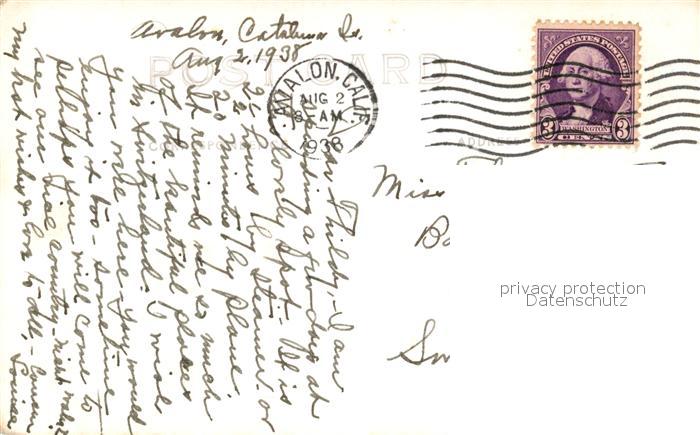 Avalon, Catalina Is.
Aug 2, 1938
POST CARD
AVALON, CALIF.
AUG 2
8 AM
1938
UNITED STATES POSTAGE
3 WASHINGTON 3
CORRESPONDENCE
ADDRESS
I am
spending a few days at
lovely spot. It is
2½ hours by steamer or
20 minutes by plane.
It reminds me so much
of the beautiful places
in Switzerland. I wish
you were here. You would
enjoy it too - sometime
perhaps you will come to
see our country
My best wishes & love to all, - Cousin
Louise
Miss
privacy protection
Datenschutz